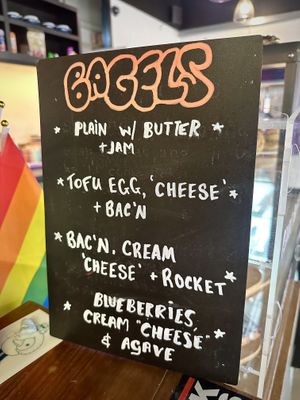 BAGELS
* PLAIN W/ BUTTER *
+ JAM
* TOFU EGG, 'CHEESE' *
+ BAC'N
* BAC'N, CREAM
'CHEESE' + ROCKET *
* BLUEBERRIES,
CREAM "CHEESE" *
& AGAVE